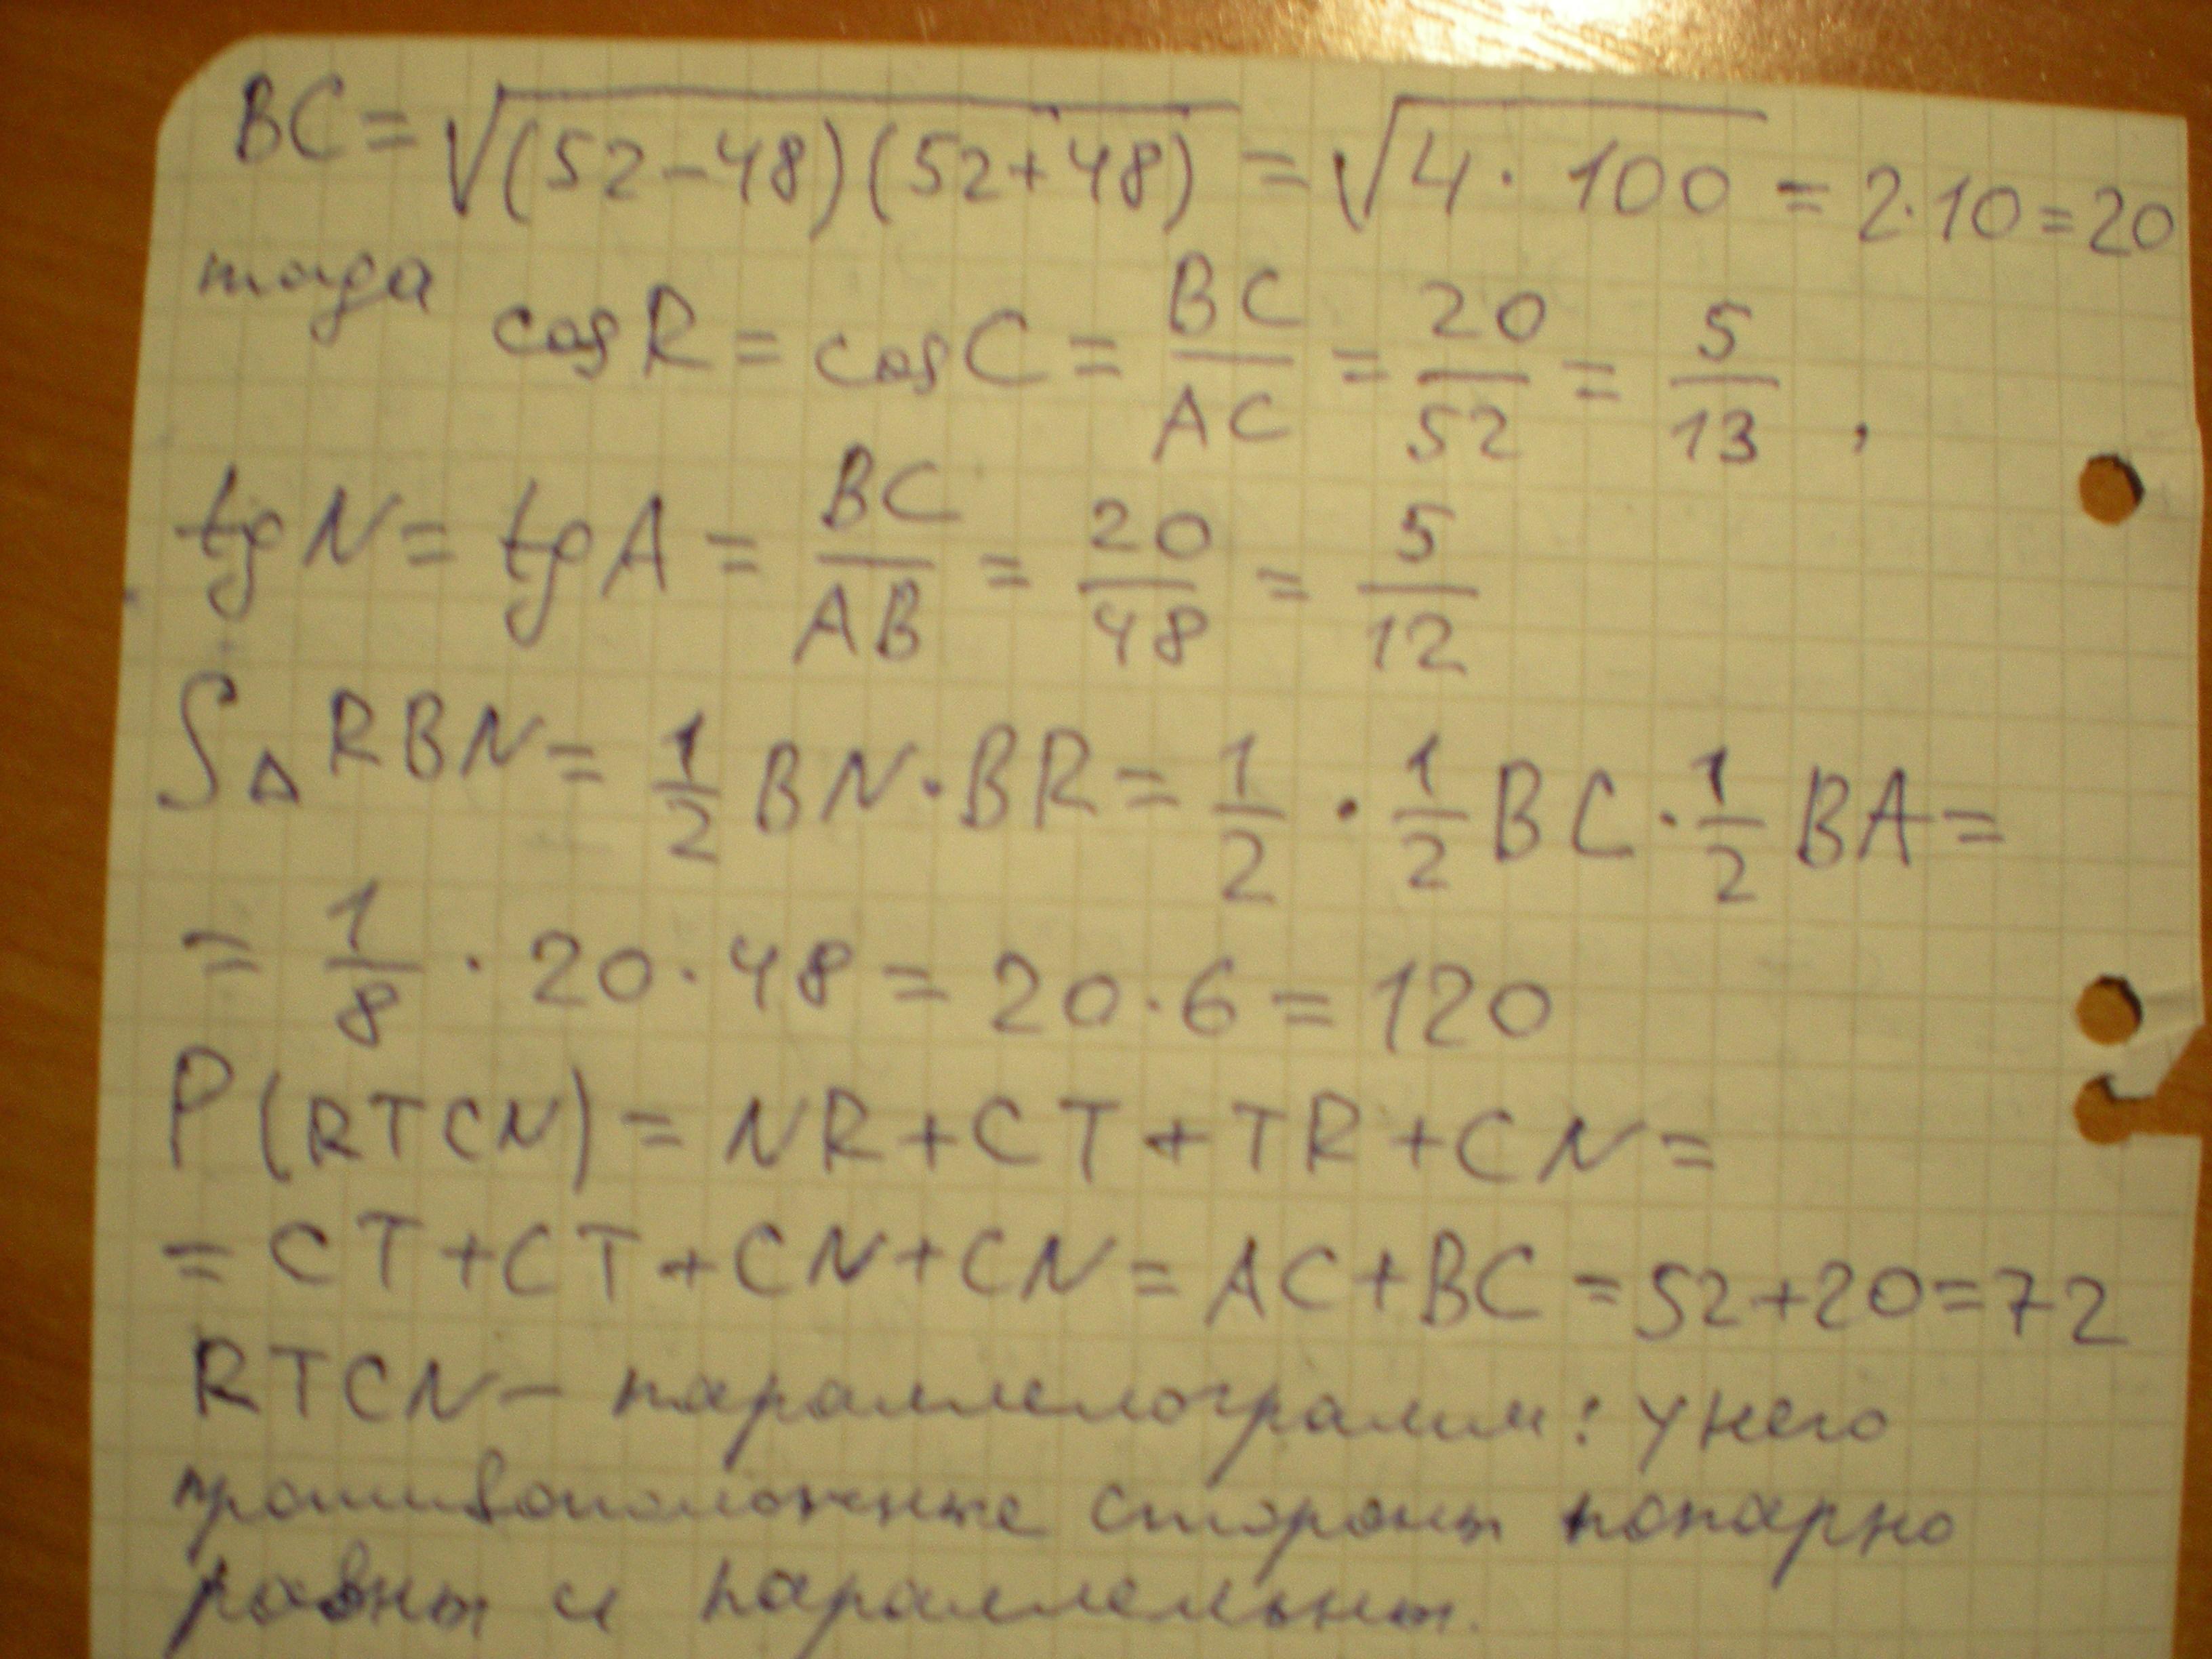 BC = √(52-48)(52+48) = √4 · 100 = 2·10 = 20
тогда cos R = cos C = BC/AC = 20/52 = 5/13 ,
tg N = tg A = BC/AB = 20/48 = 5/12
S△ RBN = 1/2 BN · BR = 1/2 · 1/2 BC · 1/2 BA =
= 1/8 · 20 · 48 = 20 · 6 = 120
P (RTCN) = NR + CT + TR + CN =
= CT + CT + CN + CN = AC + BC = 52 + 20 = 72
RTCN – параллелограмм: у него
противоположные стороны попарно
равны и параллельны.